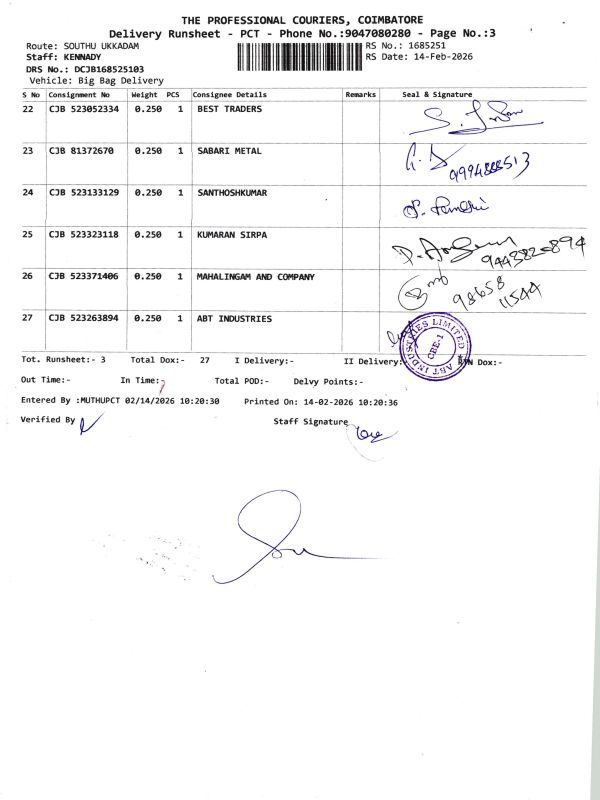 THE PROFESSIONAL COURIERS, COIMBATORE
Delivery Runsheet - PCT - Phone No.:9047080280 - Page No.:3
Route: SOUTHU UKKADAM RS No.: 1685251
Staff: KENNADY RS Date: 14-Feb-2026
DRS No.: DCJB168525103
Vehicle: Big Bag Delivery
S No Consignment No Weight PCS Consignee Details Remarks Seal & Signature
22 CJB 523052334 0.250 1 BEST TRADERS
23 CJB 81372670 0.250 1 SABARI METAL
9994888513
24 CJB 523133129 0.250 1 SANTHOSHKUMAR
25 CJB 523323118 0.250 1 KUMARAN SIRPA
9443820894
26 CJB 523371406 0.250 1 MAHALINGAM AND COMPANY
98658
11544
27 CJB 523263894 0.250 1 ABT INDUSTRIES
ABT INDUSTRIES LIMITED
CBE-1
Tot. Runsheet:- 3 Total Dox:- 27 I Delivery:- II Delivery:- Dox:-
Out Time:- In Time:- Total POD:- Delvy Points:-
Entered By :MUTHUPCT 02/14/2026 10:20:30 Printed On: 14-02-2026 10:20:36
Verified By Staff Signature